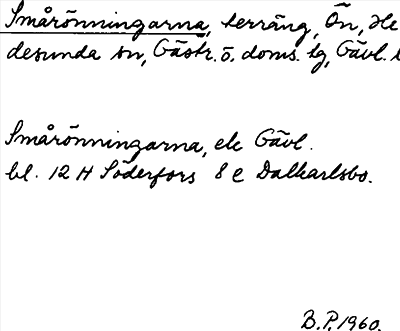 Smårönningarna, terräng, Ön, He
desunda sn, Gästr. ö. doms. lg, Gävl. l
Smårönningarna, ek Gävl.
bl. 12 H Söderfors 8 e Dalkarlsbo.
B.P. 1960.